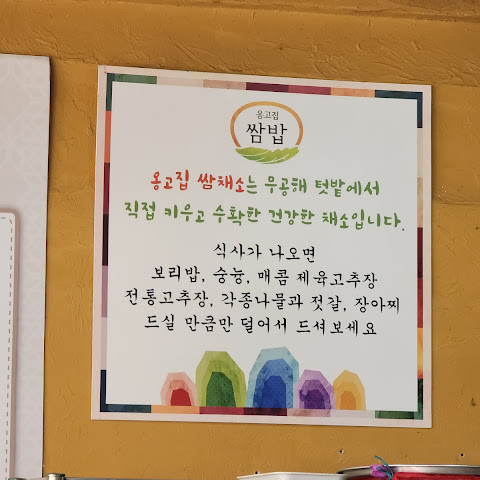 옹고집
쌈밥
옹고집 쌈채소는 무공해 텃밭에서
직접 키우고 수확한 건강한 채소입니다.
식사가 나오면
보리밥, 숭늉, 매콤 제육고추장
전통고추장, 각종나물과 젓갈, 장아찌
드실 만큼만 덜어서 드셔보세요